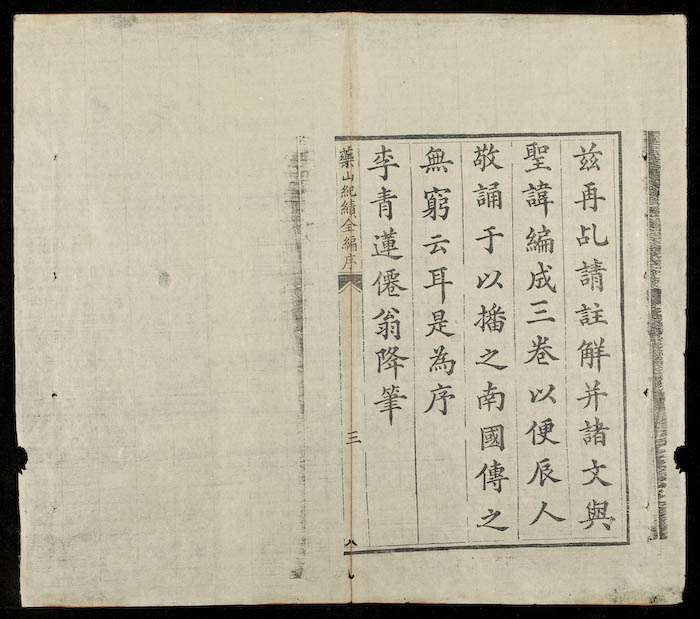 茲再乩請註解并諸文與
聖諱編成三卷以便辰人
敬誦于以播之南國傳之
無窮云耳是為序
李青蓮僊翁降筆
藥山紀績全編序
三
八